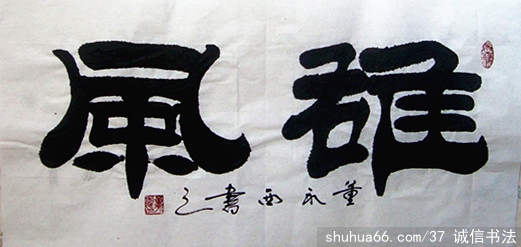 雄風
董永西書之
shuhua66.com/37 诚信书法